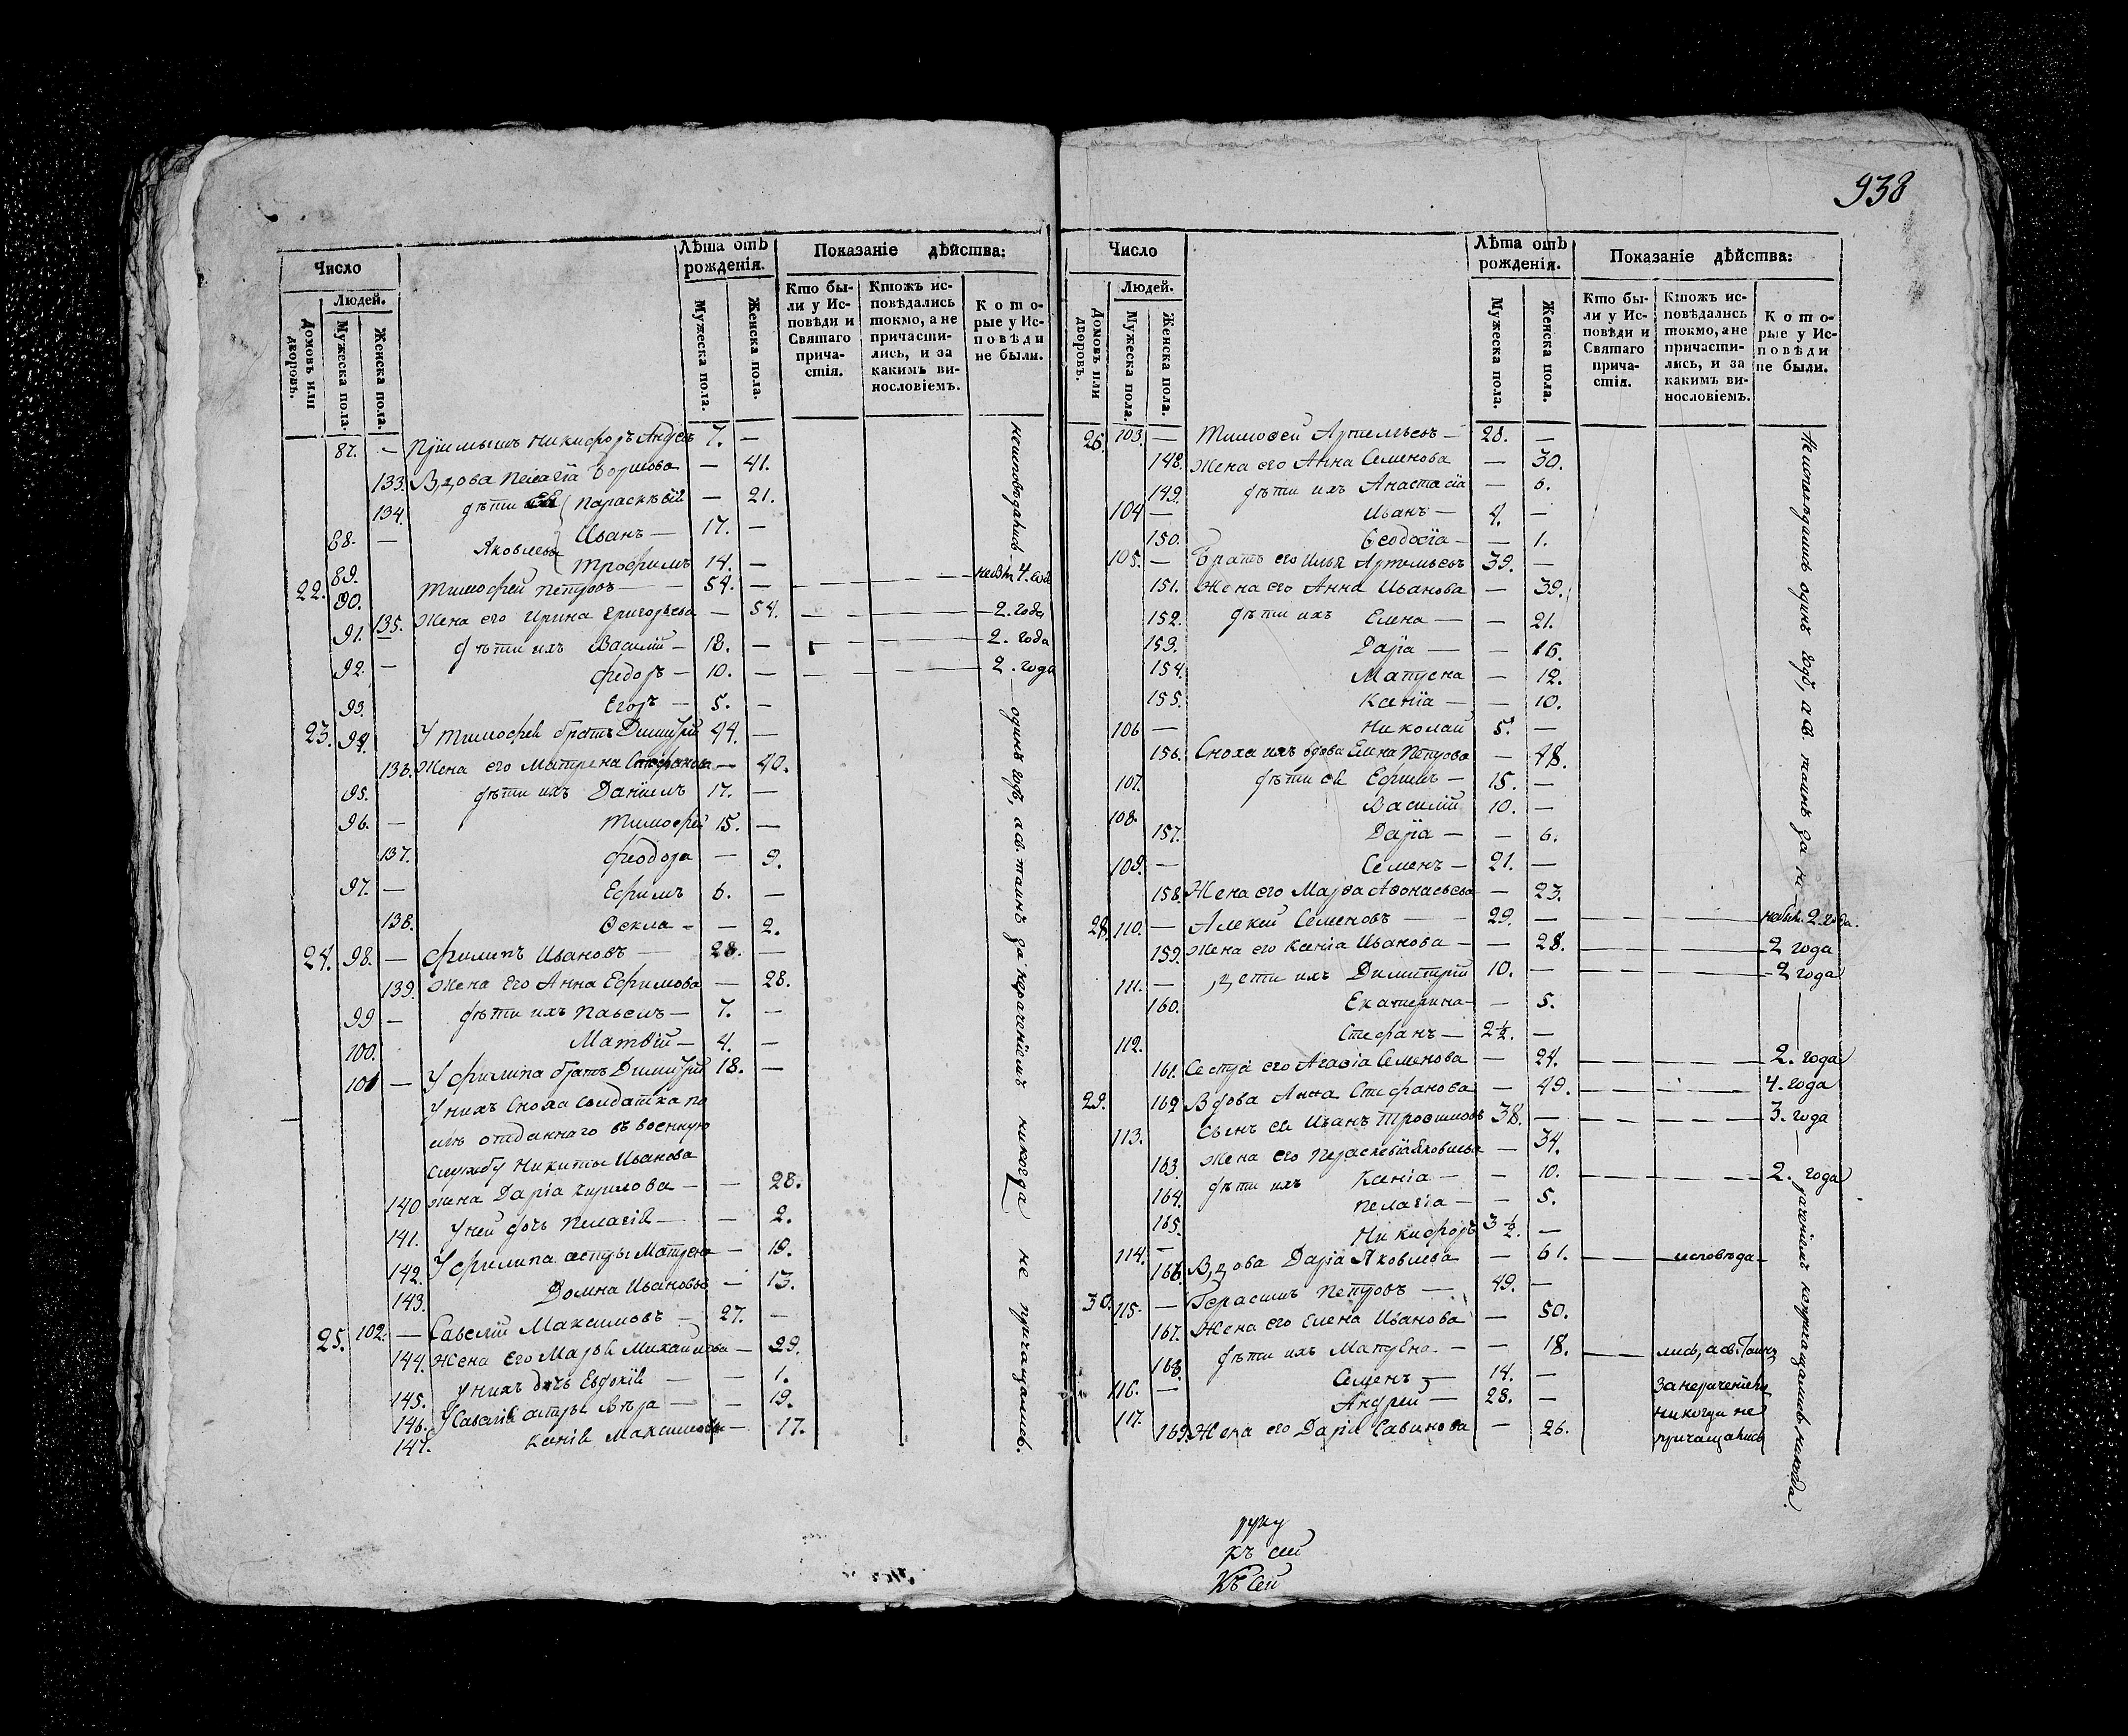 938
Число
Людей.
Домовъ или дворовъ.
Мужеска пола.
Женска пола.
Лѣта отъ рожденія.
Мужеска пола.
Женска пола.
Показаніе дѣйства:
Кто бы-
ли у Ис-
повѣди и
Святаго
прича-
стія.
Ктожъ ис-
повѣдались
токмо, а не
причасти-
лись, и за
какимъ ви-
нословіемъ.
Кото-
рые у Ис-
повѣди
не были.
87. — Никифоръ 7. —
133. Вдова Пелагія — 41.
134. дѣти ея Параскѣвія — 21.
88. — Иванъ — 17. —
89. Яковлевы Трофимъ 14. —
22. 90. Тимофей Петровъ — 54. — 4. года
135. Жена его Ирина Григорьева — 54. — 2. года
91. — дѣти ихъ Василій — 18. — 2. года
92. — Федоръ — 10. — 2. года
93. Егоръ — 5. —
23. 94. У Тимофея братъ Димитрій 44. —
136. Жена его Матрена Стефанова — 40.
95. дѣти ихъ Даніилъ 17. —
96. — Тимофей 15. —
137. Феодора — 9.
97. — Ефимъ 6. —
138. Ѳекла — — 2.
24. 98. — Филипъ Ивановъ — 28. —
139. Жена его Анна Ефимова — 28.
99 — дѣти ихъ Павелъ — 7. —
100. Матвій — 4. —
101 — У Филипа братъ Димитрій 18. —
У нихъ сноха солдатка по
отданнаго въ военную
службу Никиты Иванова
140 жена Дарія Кирилова — — 28.
141. У ней дочь Пелагія — — 2.
142. У Филипа сестры Матрена — 19.
143. Домна Ивановы — 13.
25. 102. — Савелій Максимовъ — 27. —
144. Жена его Марья Михайлова — 29.
145. У нихъ дочь Евдокія — — 1.
146. У Савелія сестры Вѣра — — 19.
147. Ксенія Максимовы — 17.
неисповѣдались
одинъ годъ, а св. таинъ за нераченіемъ никогда не причащались.
Число
Людей.
Домовъ или дворовъ.
Мужеска пола.
Женска пола.
Лѣта отъ рожденія.
Мужеска пола.
Женска пола.
Показаніе дѣйства:
Кто бы-
ли у Ис-
повѣди и
Святаго
прича-
стія.
Ктожъ ис-
повѣдались
токмо, а не
причасти-
лись, и за
какимъ ви-
нословіемъ.
Кото-
рые у Ис-
повѣди
не были.
26. 103. — Тимоѳей Артемьевъ — 28. —
148. Жена его Анна Семенова — 30.
149. дѣти ихъ Анастасія — 6.
104 — Иванъ — 4. —
150. Ѳеодосія — — 1.
105. — Братъ его Илья Артемьевъ 39. —
151. Жена его Анна Иванова — 39.
152. дѣти ихъ Елена — — 21.
153. Дарія — — 16.
154. Матрена — 12.
155. Ксенія — — 10.
106 — Николай 5. —
156. Сноха ихъ вдова Елена Петрова — 48.
107. дѣти ея Ефимъ — 15. —
108. Василій 10. —
157. Дарія — — 6.
109. — Семенъ — 21. —
158. Жена его Марѳа Аѳонасьева — 23.
28. 110. — Алексій Семеновъ — 29. — 2. года.
159. Жена его Ксенія Иванова — — 28. — 2 года
111. — дети ихъ Димитрій 10. — 2 года
160. Екатерина — — 5.
112. Стефанъ — 2½. —
161. Сестра его Агафія Семенова — 24. — 2. года
29. 162 Вдова Анна Стефанова — 49. — 4. года
113. Сынъ ея Иванъ Трофимовъ 38. — 3. года
163 Жена его Параскевія Яковлева — 34.
164. дѣти ихъ Ксенія — — 10. — 2. года
165. Пелагія — — 5.
114. — Никифоръ 3½. —
166. Вдова Дарія Яковлева — 61. — исповѣда-
30. 115. — Герасимъ Петровъ — 49. —
167. Жена его Елена Иванова — 50.
168. дѣти ихъ Матрена — — 18. — лись, а св. Таинъ
116. — Семенъ — 14. — за нераченіемъ
117. Андрей — 28. — никогда не
169. Жена его Дарія Савинова — 26. причащались
Не исповѣдались одинъ годъ, а св. таинъ за не-
раченіемъ непричащались никогда.
руку
къ сей
Къ сей